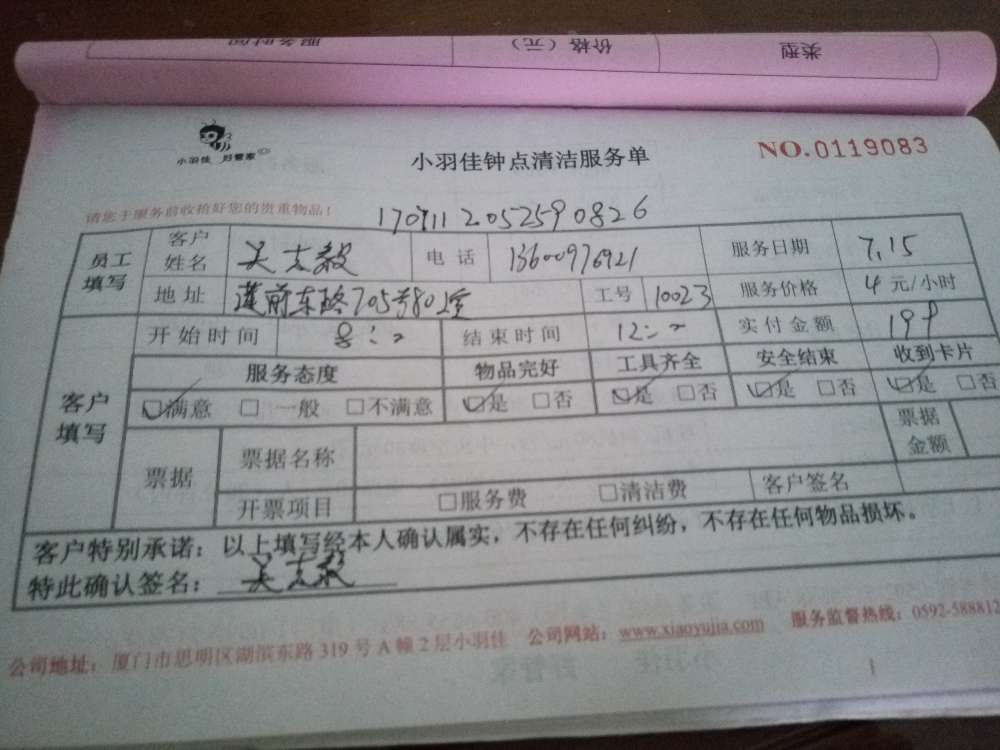 类型 价格（元） 服务时间
小羽佳 好管家
小羽佳钟点清洁服务单
NO.0119083
请您于服务前收拾好您的贵重物品！
客户姓名 吴志毅 电话 13600976921 服务日期 7,15
员工填写
地址 莲前东路705号802室 工号 10023 服务价格 4 元/小时
开始时间 8:00 结束时间 12:00 实付金额
服务态度 物品完好 工具齐全 安全结束 收到卡片
客户填写
☑满意 □一般 □不满意 ☑是 □否 ☑是 □否 ☑是 □否 ☑是 □否
票据 票据名称 票据金额
开票项目 □服务费 □清洁费 客户签名
客户特别承诺：以上填写经本人确认属实，不存在任何纠纷，不存在任何物品损坏。
特此确认签名：吴志毅
公司地址：厦门市思明区湖滨东路319号A幢2层小羽佳 公司网站：www.xiaoyujia.com 服务监督热线：0592-588812
1